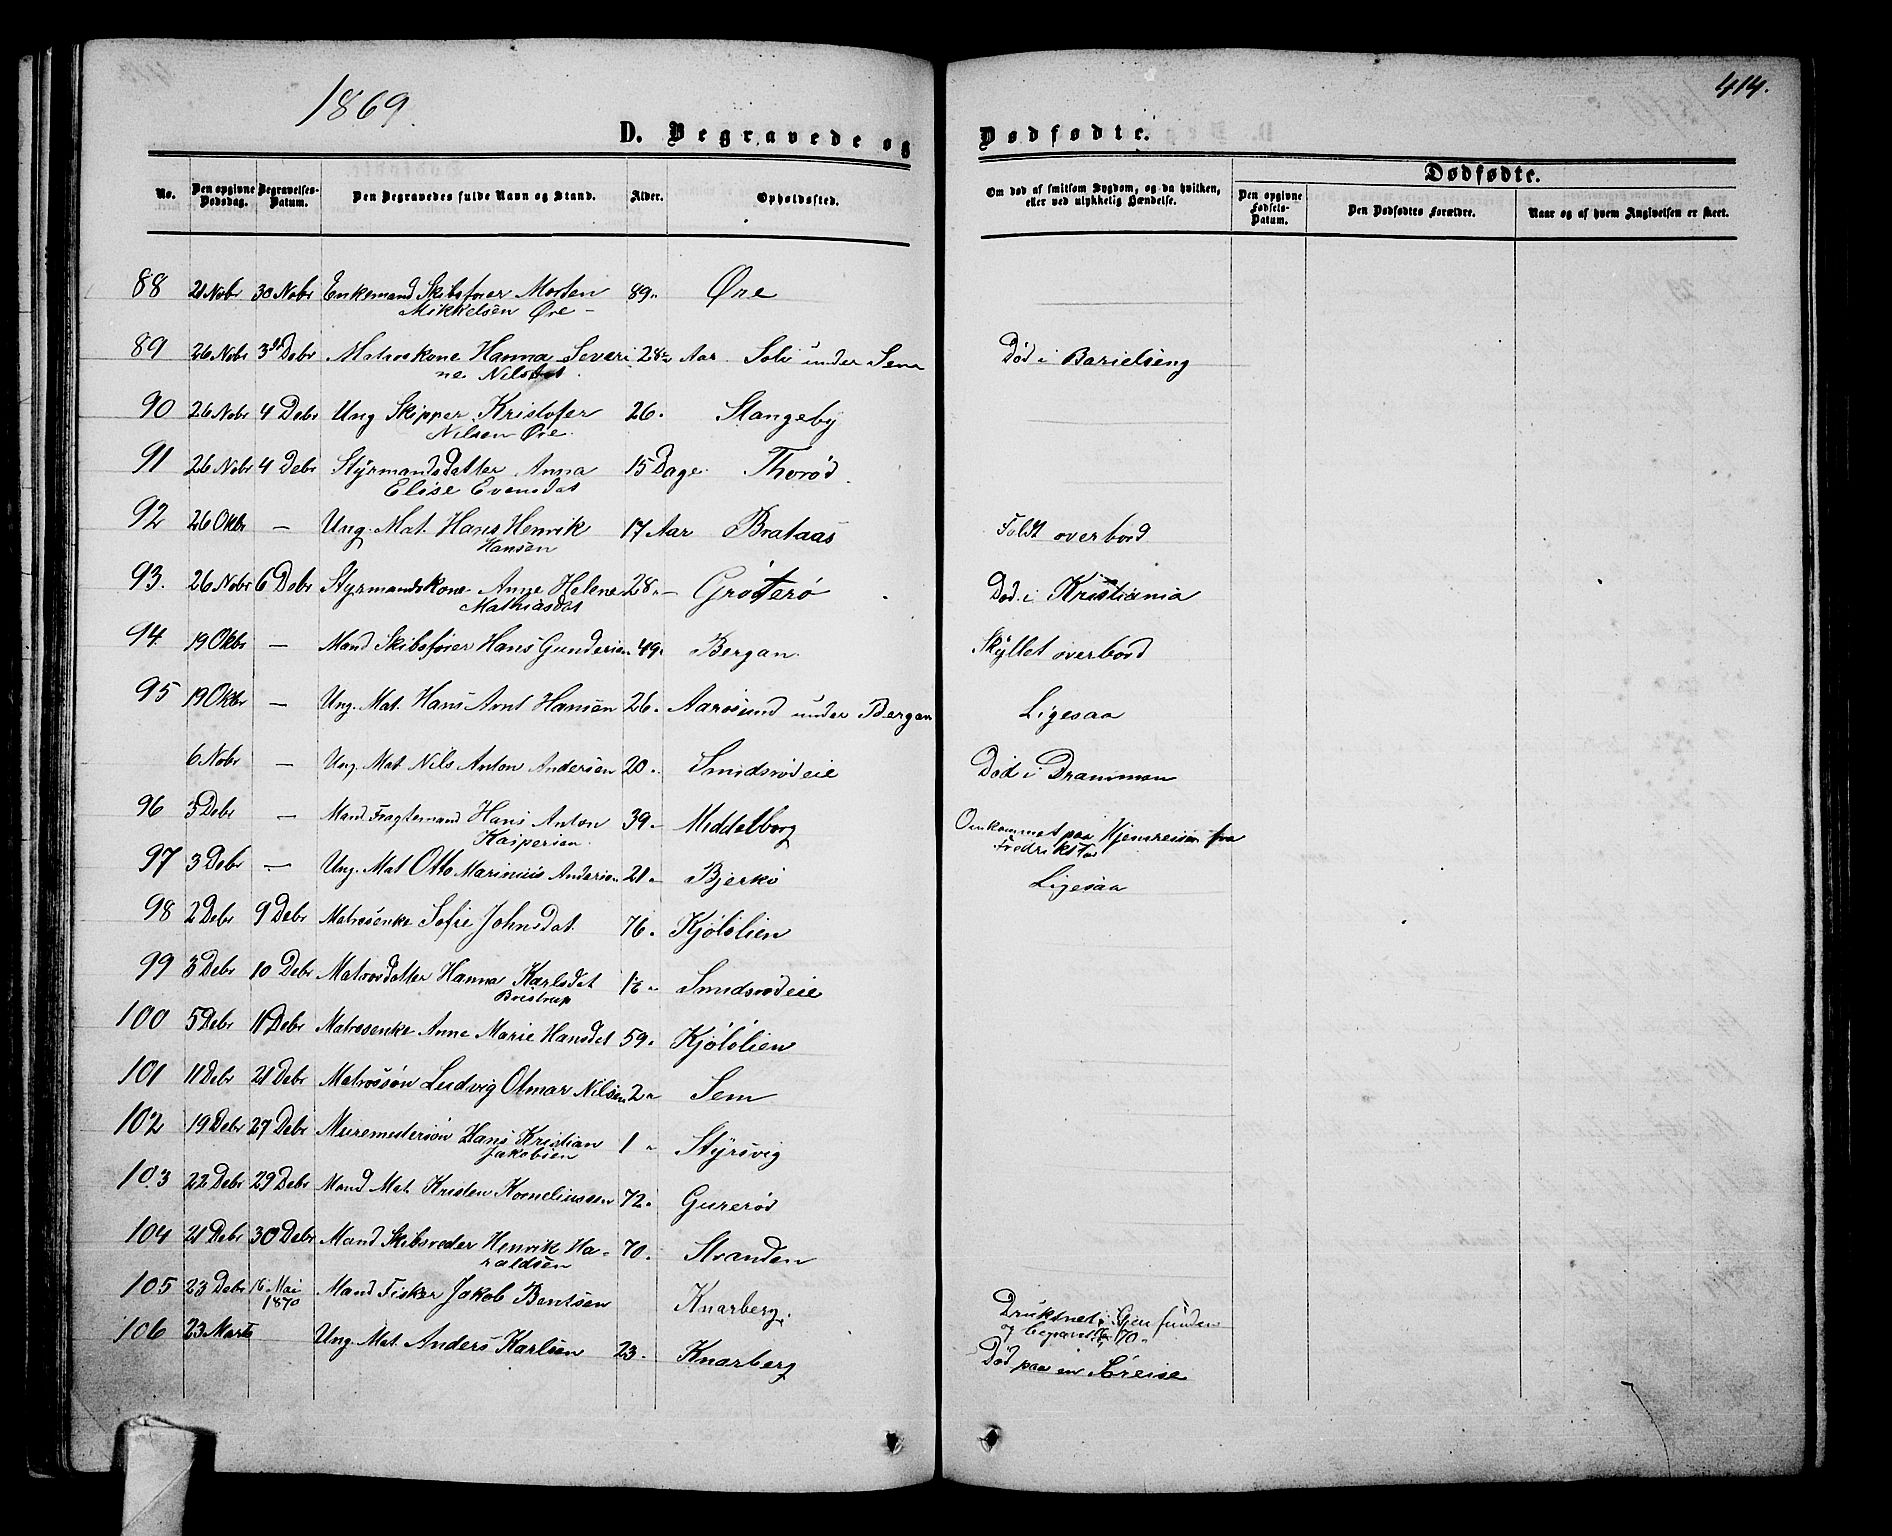 1869.
414.
D. Begravede og Dødfødte.
No.
Den opgivne Dødsdag.
Begravelses-Datum.
Den Begravedes fulde Navn og Stand.
Alder.
Opholdssted.
Om død af smitsom Sygdom, og da hvilken, eller ved ulykkelig Hændelse.
Dødfødte.
Den opgivne Fødsels-Datum.
Den Dødfødtes Forældre.
Naar og af hvem Angivelsen er skeet.
88 21 Nobr 30 Nobr Enkemand Skibsfører Morten 89 " Øre
Mikkelsen Øre -
89 26 Nobr 3 Debr Matroskone Hanna Severi 28 Aar Solv under Sem Død i
ne Nilsdat.
90 26 Nobr 4 Debr Ung. Skipper Kristofer 26 " Stangeby
Nilsen Øre.
91 26 Nobr 4 Debr Styrmandsdatter Anna 15 Dage. Thorød.
Elise Evensdat
92 26 Okbr — Ung. Mat. Hans Henrik 17 Aar Brataas Faldt overbord
Hansen
93. 26 Nobr 6 Debr Styrmandskone Anne Helene 28 " — Grøtterø Død i Kristiania
Mathiasdat
94. 19 Okbr — Mand Skibsfører Hans Gundersen 49 " Bergan. Skyllet overbord
95 19 Okbr — Ung. Mat. Hans Arnt Hansen 26 " Aarøsund under Bergan Ligesaa
6 Nobr — Ung. Mat. Nils Anton Andersen 20 " Smidsrødeie Død i Drammen
96 3 Debr — Mand. Fragtemand Hans Anton 39 " Middelborg Omkommet paa Hjemreisen fra
Kaspersen. Fredrikstad
97 3 Debr — Ung. Mat Otto Marinius Andersen 21 " Bjerkø Ligesaa
98 2 Debr 9 Debr Matrosenke Sofie Johnsdat. 76 " Kjølølien
99 3 Debr 10 Debr Matrosdatter Hanna Karlsdat Smidsrødeie
Bristrup
100 5 Debr 11 Debr Matrosenke Anne Marie Hansdat 59 " Kjølølien
101 11 Debr 21 Debr Matrossøn Ludvig Otmar Nilsen 2 " Sem
102 19 Debr 27 Debr Muremestersøn Hans Kristian 1 " Styrsvig
Jakobsen
103 22 Debr 29 Debr Mand Mat. Kristen Korneliussen 72 " Gurerød
104 21 Debr 30 Debr Mand Skibsreder Henrik Ha- 70 " Stranden
raldsen
105 23 Debr 16. Mai 1870 Mand Fisker Jakob Bentsen Knarberg. Druknet; Gjenfunden
og begravet 70 "
106 23 Marts Ung. Mat. Anders Karlsen 23 " Knarberg Død paa en Søreise